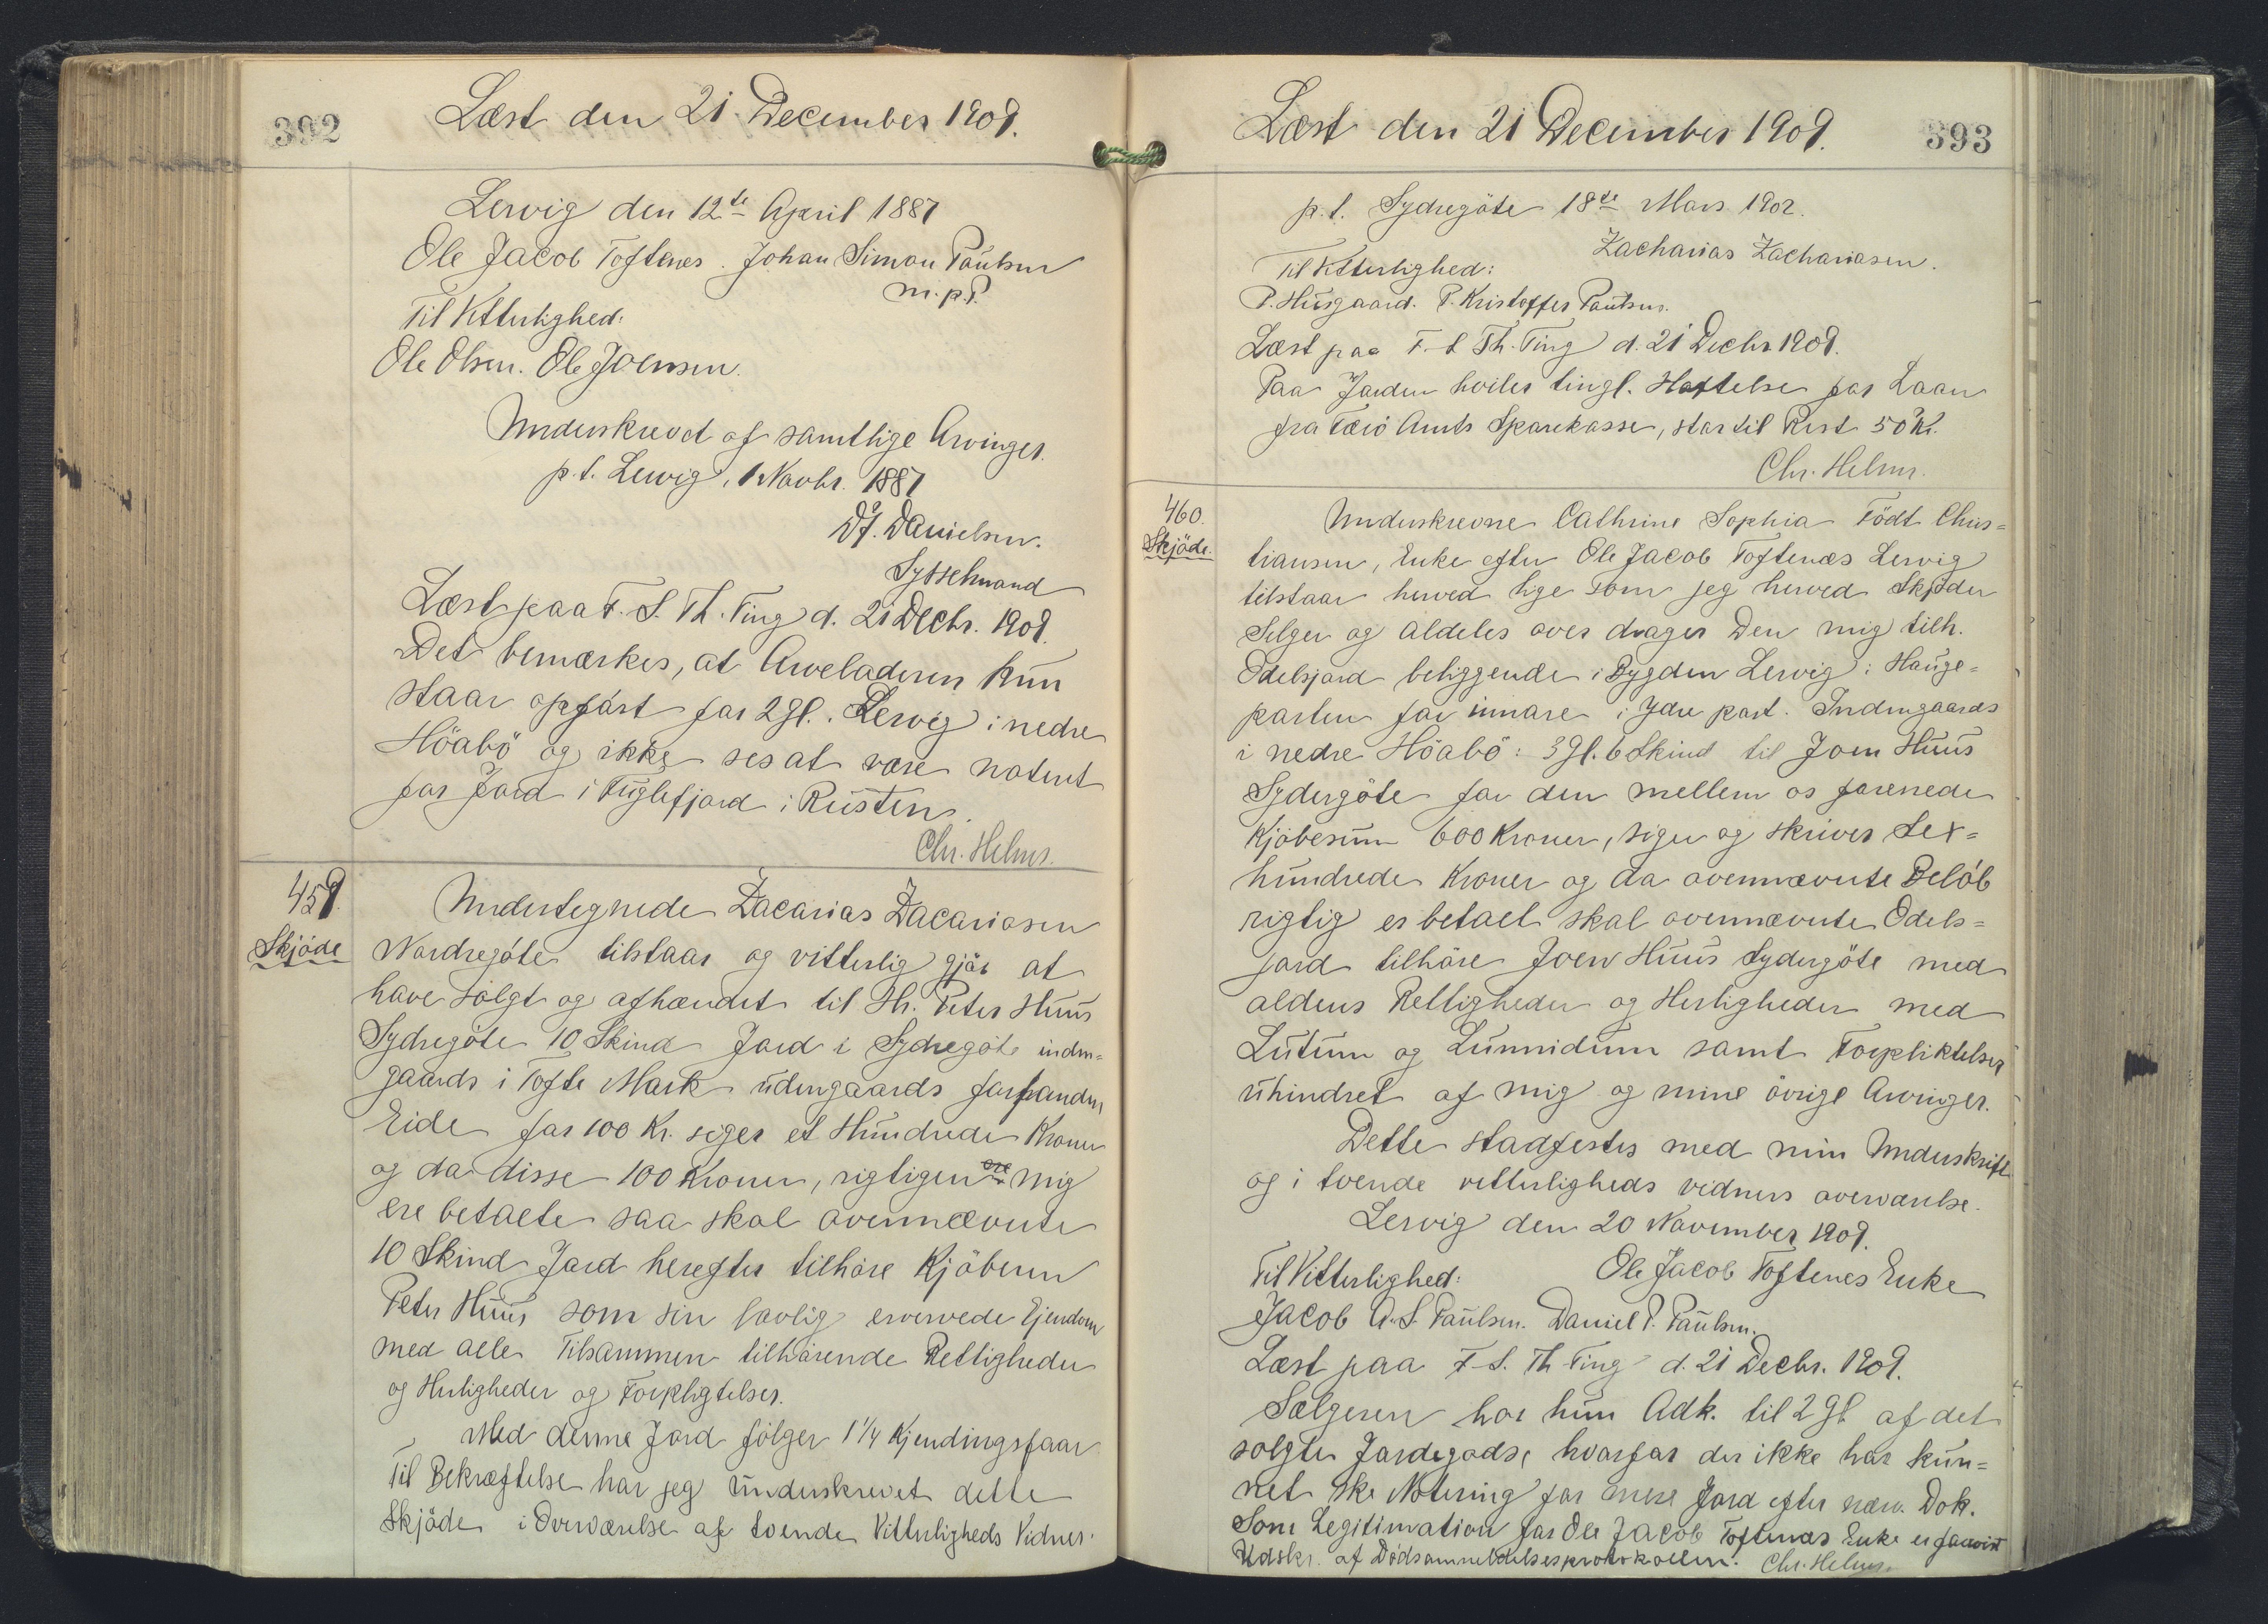 392
Læst den 21 December 1909.
Lervig den 12te April 1887
Ole Jacob Toftenes. Johan Simon Paulsen
m.p.P.
Til Vitterlighed:
Ole Olsen. Ole Joensen.
Underskrevet af samtlige Arvinger.
p.t. Lervig, 1 Novbr. 1887
Df. Danielsen.
Sysselmand
Læst paa F. S. Th. Ting d. 21 Decbr. 1909.
Det bemærkes, at Arveladeren kun
staar opført for 2 Gl. Lervig i nedre
Höabö og ikke ses at være noteret
for Jord i Fuglefjord i Rusten.
Chr. Helms.
459.
Skjöde
Undertegnede Zacarias Zacariasen
Nordregöte tilstaar og vitterlig gjör at
have solgt og afhændet til Hr. Peter Huus
Sydregöte 10 Skind Jord i Sydregöte inden-
gaards i Tofte Mark udengaards forfranden
Eide for 100 Kr. siger et Hundrede Kroner
og da disse 100 Kroner, rigtigen ere mig
ere betalte saa skal ovennævnte
10 Skind Jord herefter tilhöre Kjöberen
Peter Huus som sin lovlig erverede Ejendom
med alle Tilsammen tilhörende Rettigheder
og Herligheder og Forpligtelser.
Med denne Jord fölger 1 1/4 Kjendingsfaar
Til Bekræftelse har jeg underskrevet dette
Skjöde i Overværelse af tvende Vitterligheds Vidner.
Læst den 21 December 1909.
393
p.t. Sydregöte 18de Mars 1902.
Zacharias Zachariasen.
Til Vitterlighed:
P. Husgaard. P. Kristoffer Paulsen.
Læst paa F. S. Th. Ting d. 21 Decbr 1909.
Paa Jorden hviler tingl. Hæftelse for Laan
fra Færö Amts Sparekasse, stor til Rest 50 Kr.
Chr. Helms.
460.
Skjöde.
Underskrevne Cathrine Sophia Födt Chris-
tiansen, Enke efter Ole Jacob Toftenæs Lervig
tilstaar herved lige som jeg herved Skjöder
Selger og aldeles over drager Den mig tilh.
Odelsjord beliggende i Bygden Lervig: Hauge-
parten for innare i Ydre part. Indengaards
i nedre Höabö: 3 Gl. 6 Skind til Joen Huus
Sydergöte for den mellem os forenede
Kjöbesum 600 Kroner, siger og skriver Sex-
hundrede Kroner og da ovennævnte Belöb
rigtig er betalt skal ovennævnte Odels-
jord tilhöre Joen Huus Sydergöte med
aldens Rettigheder og Herligheder med
Lutum og Lunnidum samt Forpliktelser
uhindret af mig og mine övrige Arvinger.
Dette stadfestes med min Underskrift
og i tvende vitterligheds vidners overværelse.
Lervig den 20 November 1909.
Til Vitterlighed:
Ole Jacob Toftenes Enke
Jacob A. S. Paulsen. Daniel P. Paulsen.
Læst paa F. S. Th Ting d. 21 Decbr. 1909.
Sælgeren har kun Adk. til 2 Gl af det
solgte Jordegods, hvorfor der ikke har kun-
net ske Notering for mere Jord efter nærv. Dok.
Som Legitimation for Ole Jacob Toftenæs Enke er forevist
Udskr. af Dødsanmeldelsesprotokollen. Chr. Helms.